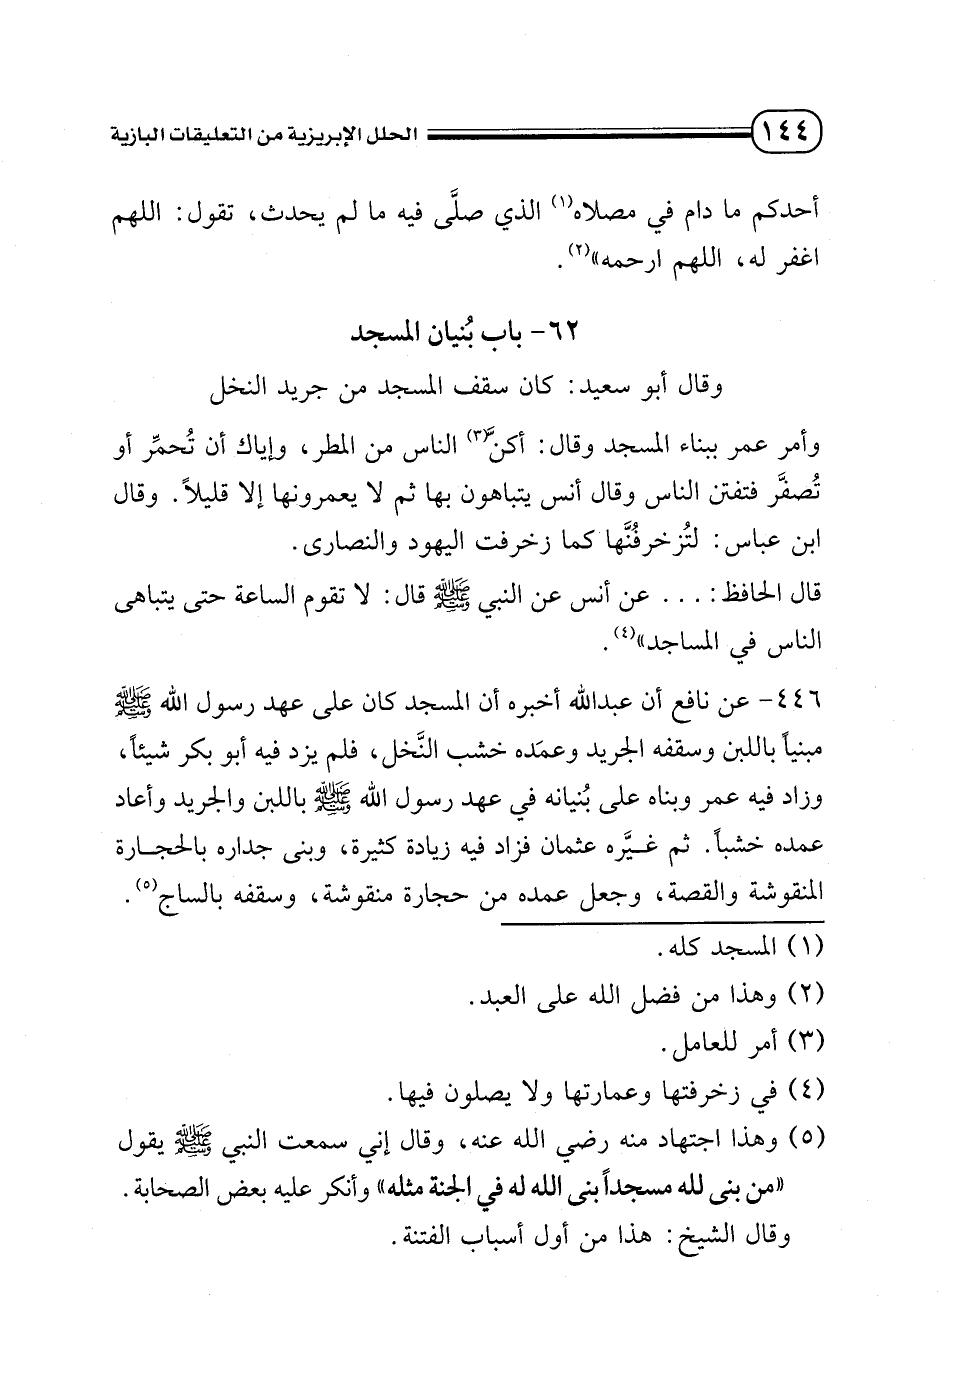 ١٤٤ الحلل الإبريزية من التعليقات البازية
أحدكم ما دام في مصلاه(١) الذي صلَّى فيه ما لم يحدث، تقول: اللهم
اغفر له، اللهم ارحمه»(٢).
٦٢- باب بُنيان المسجد
وقال أبو سعيد: كان سقف المسجد من جريد النخل
وأمر عمر ببناء المسجد وقال: أكنَّ(٣) الناس من المطر، وإياك أن تُحمرِّ أو
تُصفَّر فتفتن الناس وقال أنس يتباهون بها ثم لا يعمرونها إلا قليلاً. وقال
ابن عباس: لتُزخرفُنَّها كما زخرفت اليهود والنصارى.
قال الحافظ: ... عن أنس عن النبي ﷺ قال: لا تقوم الساعة حتى يتباهى
الناس في المساجد»(٤).
٤٤٦- عن نافع أن عبدالله أخبره أن المسجد كان على عهد رسول الله ﷺ
مبنياً باللبن وسقفه الجريد وعمَده خشب النَّخل، فلم يزد فيه أبو بكر شيئاً،
وزاد فيه عمر وبناه على بُنيانه في عهد رسول الله ﷺ باللبن والجريد وأعاد
عمده خشباً. ثم غيَّره عثمان فزاد فيه زيادة كثيرة، وبنى جداره بالحجارة
المنقوشة والقصة، وجعل عمده من حجارة منقوشة، وسقفه بالساج(٥).
(١) المسجد كله.
(٢) وهذا من فضل الله على العبد.
(٣) أمر للعامل.
(٤) في زخرفتها وعمارتها ولا يصلون فيها.
(٥) وهذا اجتهاد منه رضي الله عنه، وقال إني سمعت النبي ﷺ يقول
«من بنى لله مسجداً بنى الله له في الجنة مثله» وأنكر عليه بعض الصحابة.
وقال الشيخ: هذا من أول أسباب الفتنة.